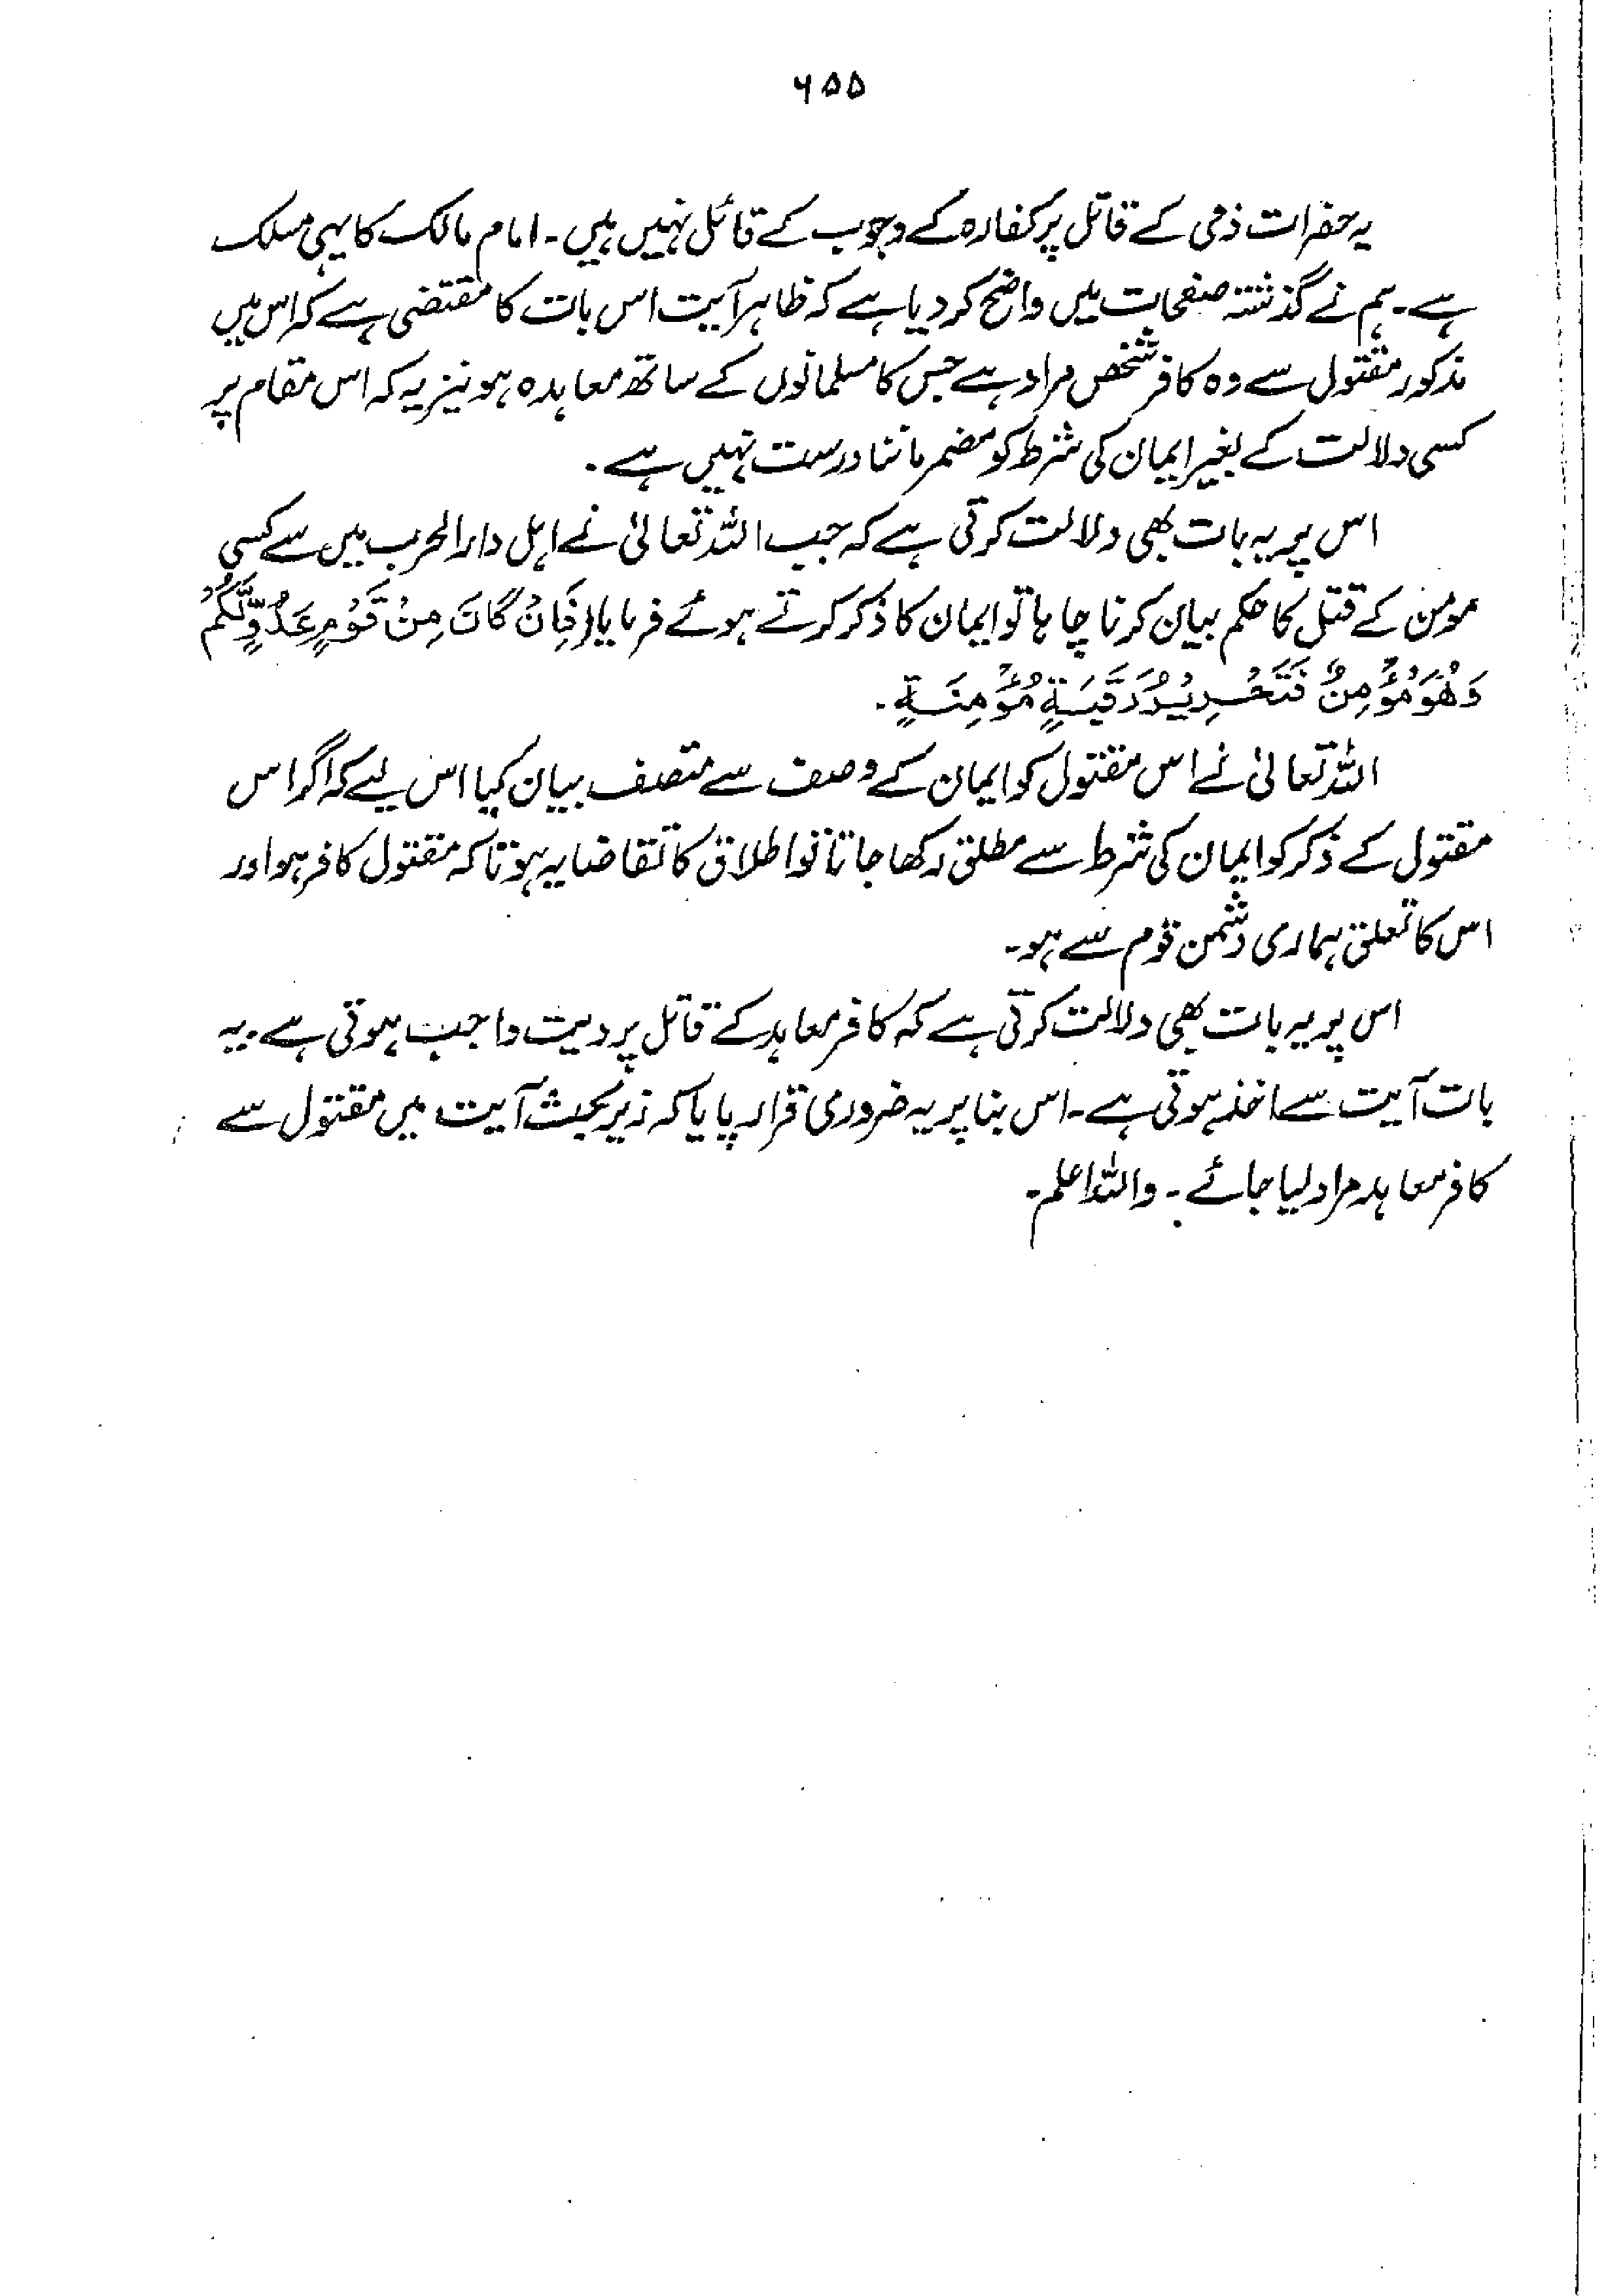 ۶۵۵
یہ حضرات ذمی کے قاتل پر کفارہ کے وجوب کے قائل نہیں ہیں۔ امام مالک کا یہی مسلک
ہے۔ ہم نے گذشتہ صفحات میں واضح کر دیا ہے کہ ظاہر آیت اس بات کا مقتضی ہے کہ اس میں
مذکور مقتول سے وہ کافر شخص مراد ہے جس کا مسلمانوں کے ساتھ معاہدہ ہو نیز یہ کہ اس مقام پر
کسی دلالت کے بغیر ایمان کی شرط کو مضمر ماننا درست نہیں ہے۔
اس پر یہ بات بھی دلالت کرتی ہے کہ جب اللہ تعالیٰ نے اہل دارالحرب میں سے کسی
مومن کے قتل کا حکم بیان کرنا چاہا تو ایمان کا ذکر کرتے ہوئے فرمایا (فَاِنْ كَانَ مِنْ قَوْمٍ عَدُوٍّ لَّكُمْ
وَهُوَ مُؤْمِنٌ فَتَحْرِيْرُ رَقَبَةٍ مُّؤْمِنَةٍ۔
اللہ تعالیٰ نے اس مقتول کو ایمان کے وصف سے متصف بیان کیا اس لیے کہ اگر اس
مقتول کے ذکر کو ایمان کی شرط سے مطلق رکھا جاتا تو اطلاق کا تقاضا یہ ہوتا کہ مقتول کافر ہو اور
اس کا تعلق ہماری دشمن قوم سے ہو۔
اس پر یہ بات بھی دلالت کرتی ہے کہ کافر معاہد کے قاتل پر دیت واجب ہوتی ہے۔ یہ
بات آیت سے اخذ ہوتی ہے۔ اس بنا پر یہ ضروری قرار پایا کہ زیر بحث آیت میں مقتول سے
کافر معاہد مراد لیا جائے۔ واللہ اعلم۔